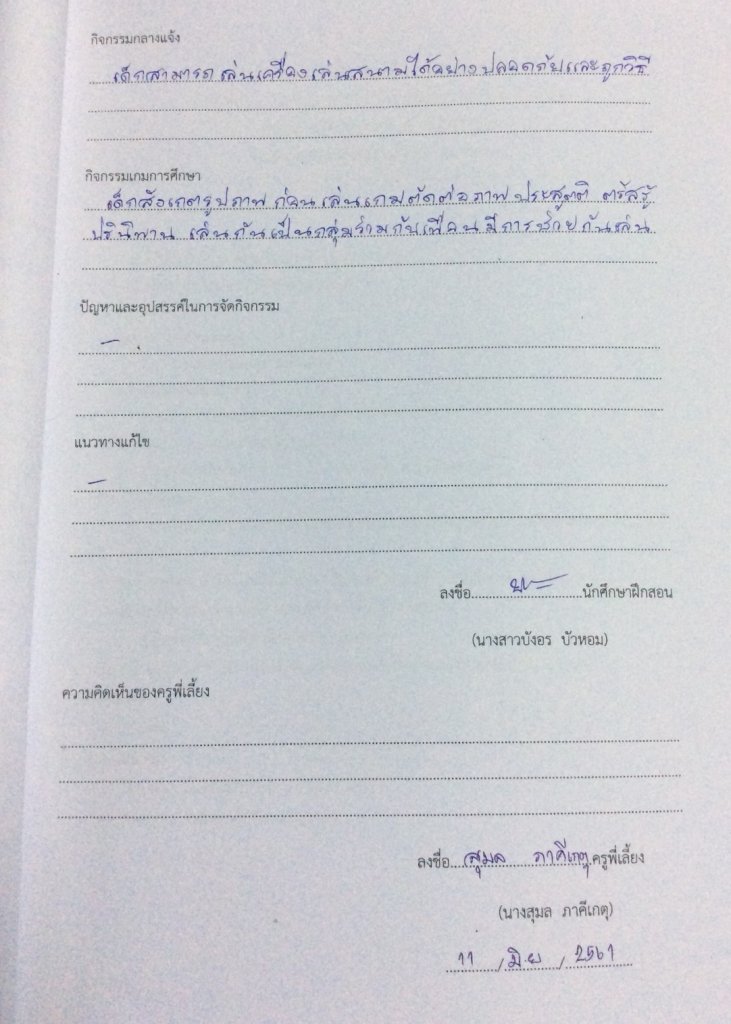 กิจกรรมกลางแจ้ง
เด็กสามารถเล่นเครื่องเล่นสนามได้อย่างปลอดภัยและถูกวิธี
กิจกรรมเกมการศึกษา
เด็กสังเกตรูปภาพก่อนเล่นเกมตัดต่อภาพประสูตติ ตรัสรู้
ปรินิพาน เล่นกันเป็นกลุ่มร่วมกับเพื่อน มีการช่วยกันเล่น
ปัญหาและอุปสรรค์ในการจัดกิจกรรม
-
แนวทางแก้ไข
-
ลงชื่อ..............................นักศึกษาฝึกสอน
(นางสาวบังอร บัวหอม)
ความคิดเห็นของครูพี่เลี้ยง
ลงชื่อ...สุมล ภาคีเกตุ...ครูพี่เลี้ยง
(นางสุมล ภาคีเกตุ)
11 / มิ.ย / 2561